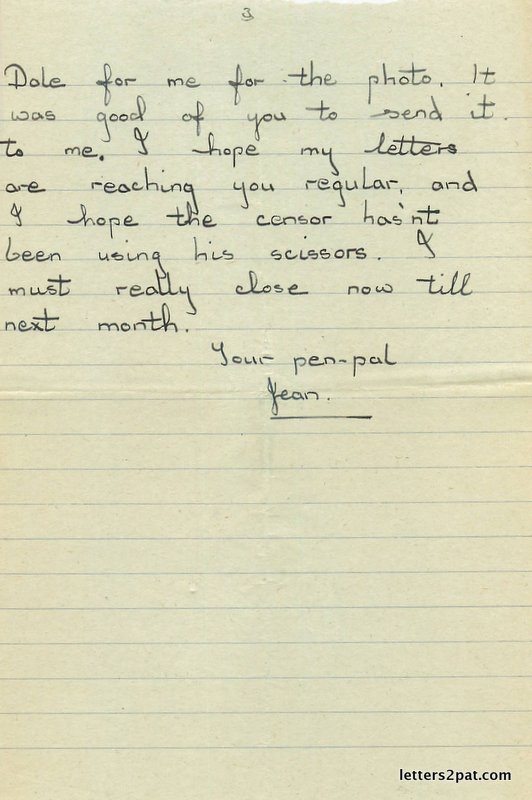 3
Dale for me for the photo. It
was good of you to send it.
to me. I hope my letters
are reaching you regular, and
I hope the censor has'nt
been using his scissors. I
must really close now till
next month.
Your pen-pal
Jean.
letters2pat.com